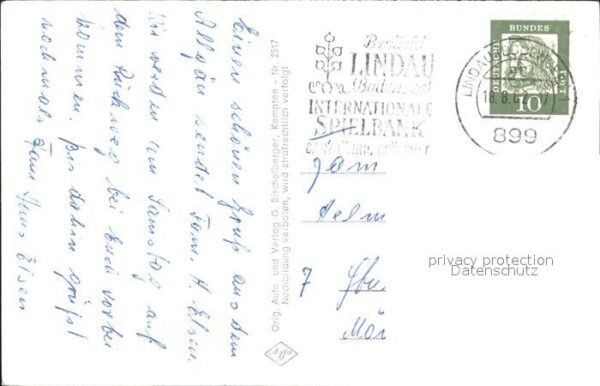 Einen schönen Gruß aus dem
Allgäu sendet Fam. H. Elsen.
Wir werden am Samstag auf
dem Rückweg bei Euch vorbei
kommen. Bis dahin grüßt
nochmals Fam. Hans Elsen
Orig. Aufn. und Verlag G. Bischofberger, Kempten - Nr. 2517
Nachbildung verboten, wird strafrechtlich verfolgt
Besucht
LINDAU
Bodensee
INTERNATIONALE
SPIELBANK
LINDAU
18.8.62
899
DEUTSCHE BUNDESPOST
10
Fam
Helm
7
Mör
privacy protection
Datenschutz